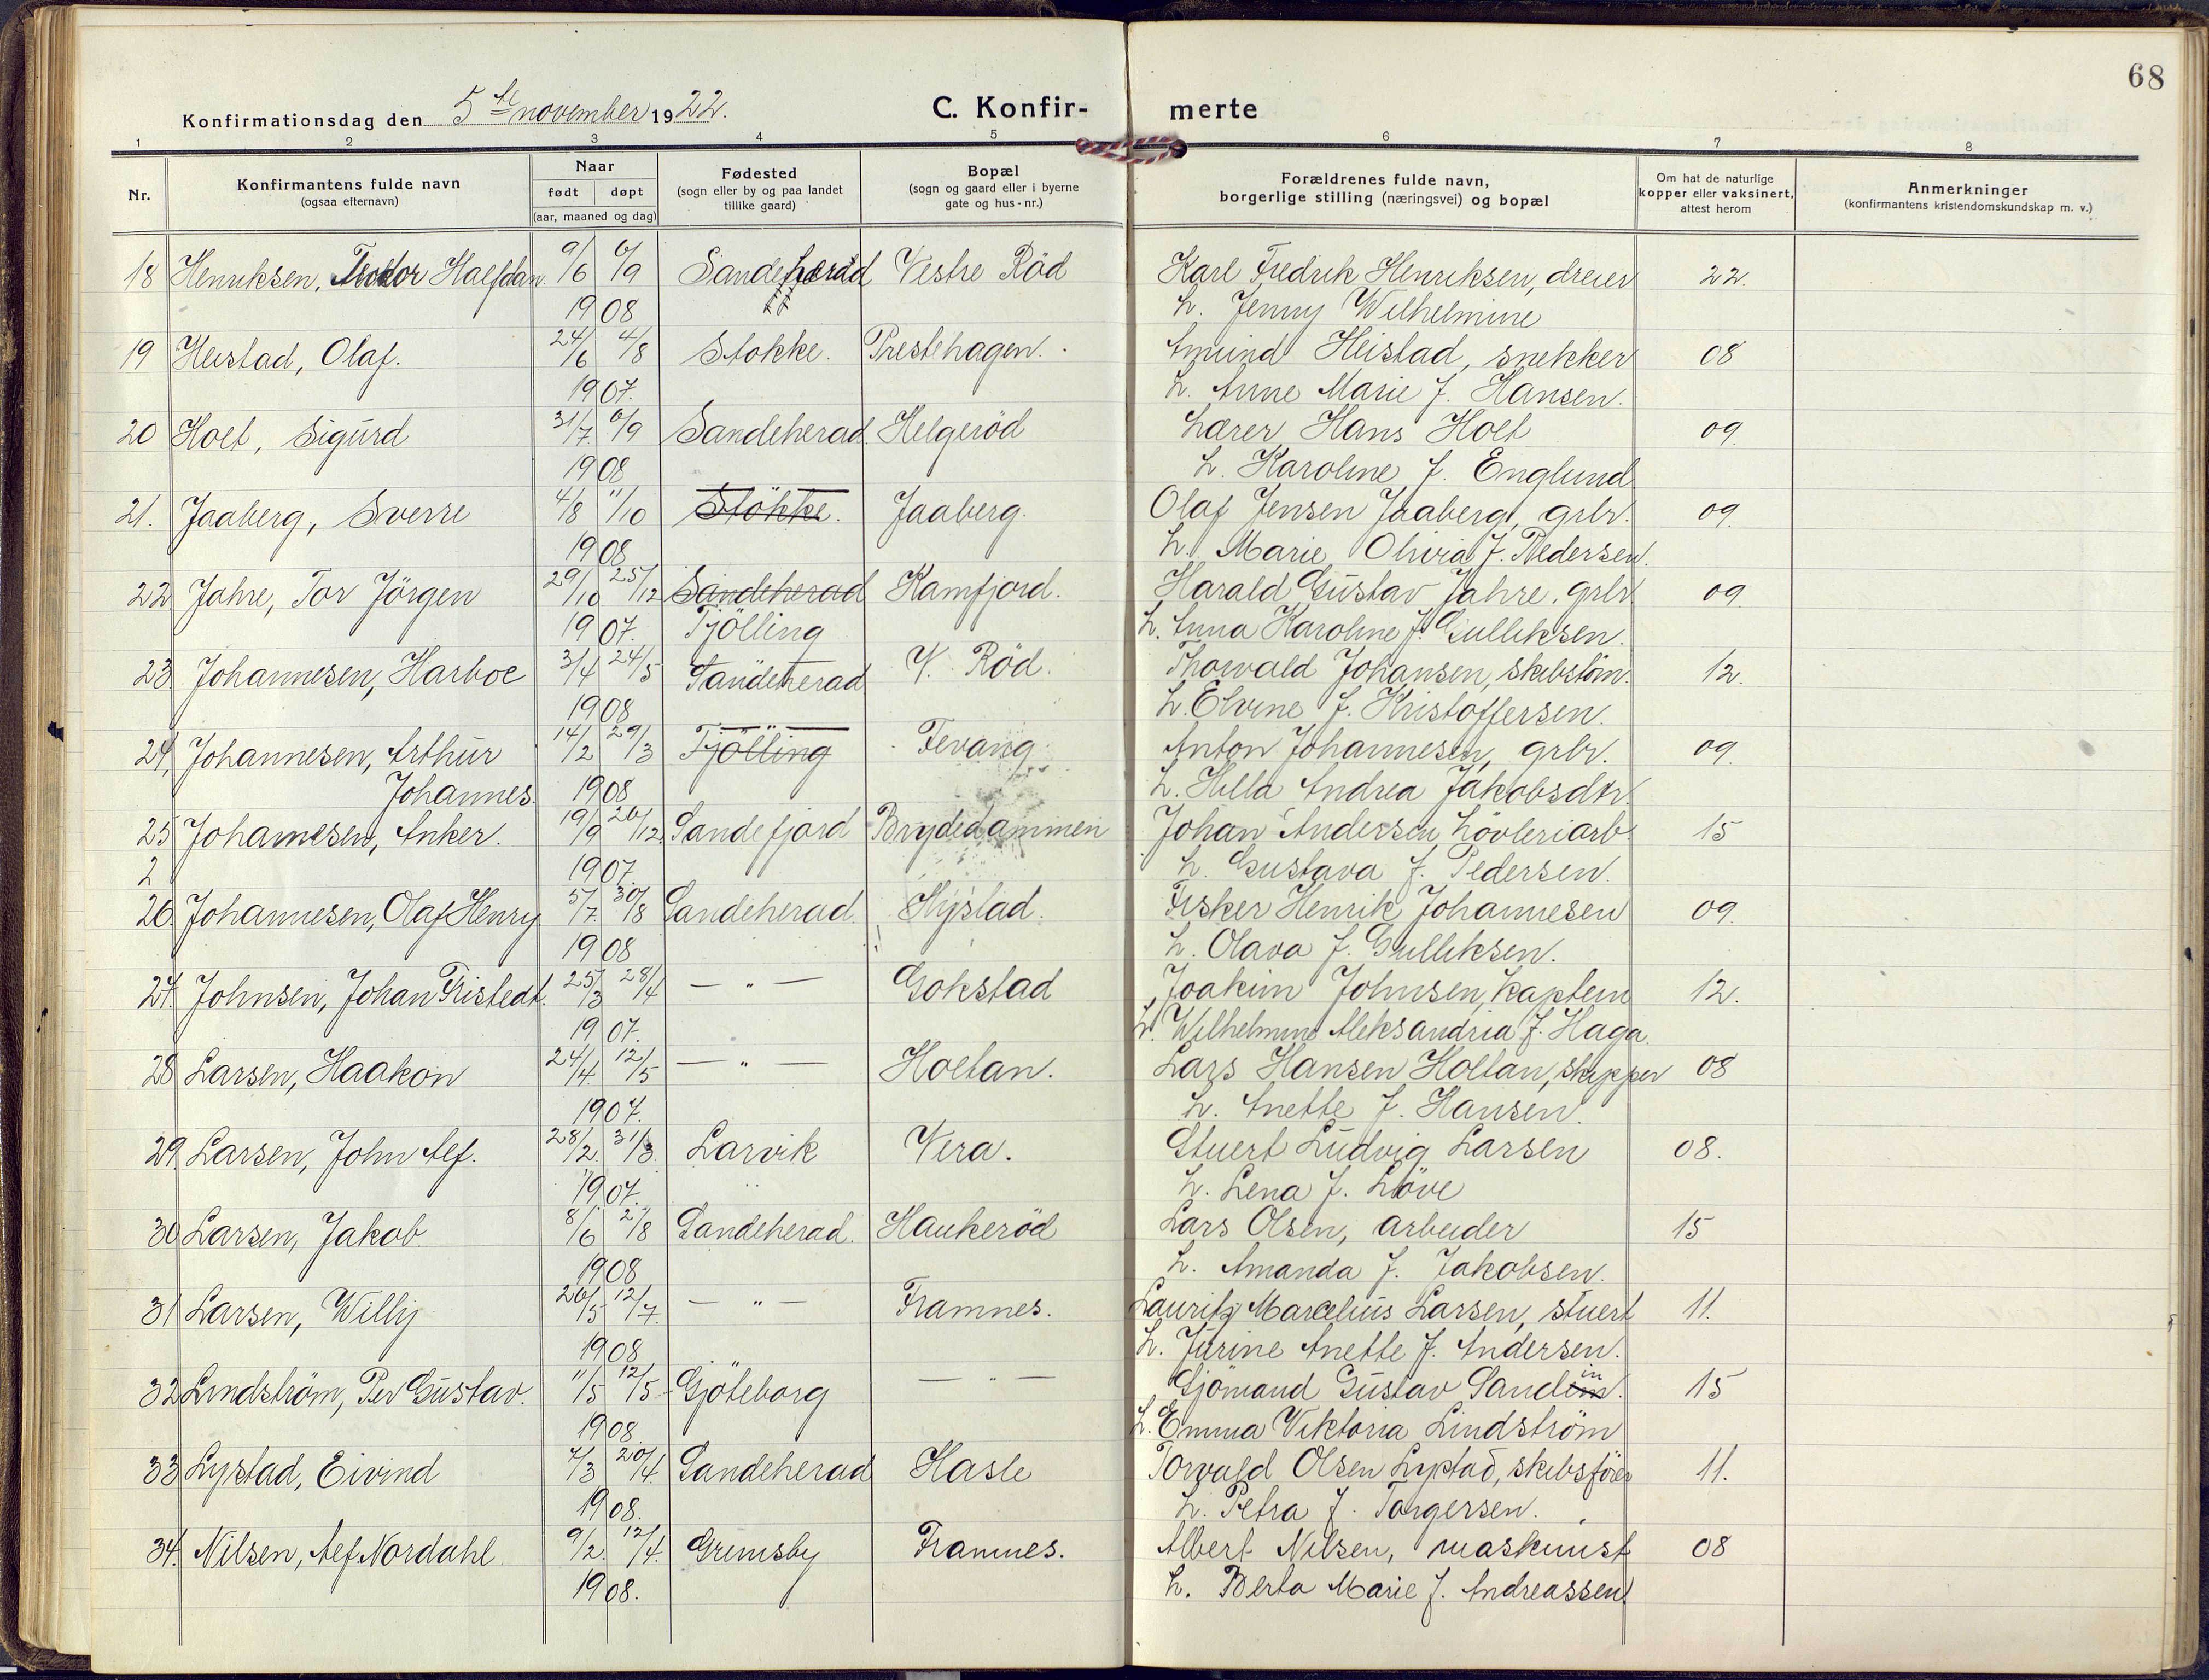 68
Konfirmationsdag den 5te november 1922. C. Konfir- merte
1 2 3 4 5 6 7 8
Nr. Konfirmantens fulde navn (ogsaa efternavn) Naar født døpt (aar, maaned og dag) Fødested (sogn eller by og paa landet tillike gaard) Bopæl (sogn og gaard eller i byerne gate og hus-nr.) Forældrenes fulde navn, borgerlige stilling (næringsvei) og bopæl Om hat de naturlige kopper eller vaksinert, attest herom Anmerkninger (konfirmantens kristendomskundskap m. v.)
18 Henriksen, Teodor Halfdan. 9/6 6/9 Sandeherad Vestre Röd Karl Fredrik Henriksen, dreier 22.
1908 h. Jenny Wilhelmine
19 Heistad, Olaf. 24/6 4/8 Stokke. Prestehagen. Amund Heistad, snekker 08
1907. h. Anne Marie f. Hansen.
20 Holt, Sigurd 31/7 6/9 Sandeherad Helgeröd Lærer Hans Holt 09.
1908 h. Karoline f. Englund
21. Jaaberg, Sverre 4/8 11/10 Stokke. Jaaberg. Olaf Jensen Jaaberg, grbr. 09.
1908 h. Marie Olivia f. Pedersen.
22 Jahre, Tor Jörgen 29/10 25/12 Sandeherad Kamfjord. Harald Gustav Jahre, grbr. 09.
1907. Tjölling h. Anna Karoline f. Gulliksen.
23 Johannesen, Harboe 3/4 24/5 Sandeherad V. Röd. Thorvald Johansen, skibstöm. 12.
1908 h. Elvine f. Kristoffersen.
24, Johannesen, Arthur 14/2 29/3 Tjölling Fevang. Anton Johannesen, grbr. 09.
Johannes. 1908 h. Hilla Andrea Jakobsdtr.
25 Johannesen, Anker. 19/9 26/12 Sandefjord Brydedammen Johan Andersen, hövleriarb. 15
2 1907. h. Gustava f. Pedersen.
26. Johannesen, Olaf Henry 5/7 30/8 Sandeherad. Hystad. Fisker Henrik Johannesen 09.
1908 h. Olava f. Gulliksen.
27. Johnsen, Johan Fristedt. 25/3 28/4 — " — Gokstad Joakim Johnsen, kaptein 12.
1907. h. Wilhelmine Aleksandria f. Haga.
28 Larsen, Haakon 24/4 12/5 — " — Holtan. Lars Hansen Holtan, skipper 08
1907. h. Anette f. Hansen.
29 Larsen, John Alf. 28/2 31/3 Larvik Vera. Stuert Ludvig Larsen 08.
1907. h. Lena f. Löve
30 Larsen, Jakob 8/6 2/8 Sandeherad. Haukeröd Lars Olsen, arbeider 15
1908 h. Amanda f. Jakobsen.
31 Larsen, Willy 26/5 12/7 — " — Framnes. Lauritz Marcelius Larsen, stuert 11.
1908 h. Jurine Anette f. Andersen.
32 Lindström, Per Gustav. 11/5 12/5 Gjöteborg — " — Sjömand Gustav Sandin. 15
1908. h. Emma Viktoria Lindström
33 Lystad, Eivind 7/3 20/4 Sandeherad Hasle Torvald Olsen Lystad, skibsförer 11.
1908. h. Petra f. Torgersen.
34. Nilsen, Alf Nordahl 9/2 12/4 Grimsby Framnes. Albert Nilsen, maskinist 08
1908. h. Berta Marie f. Andreassen.